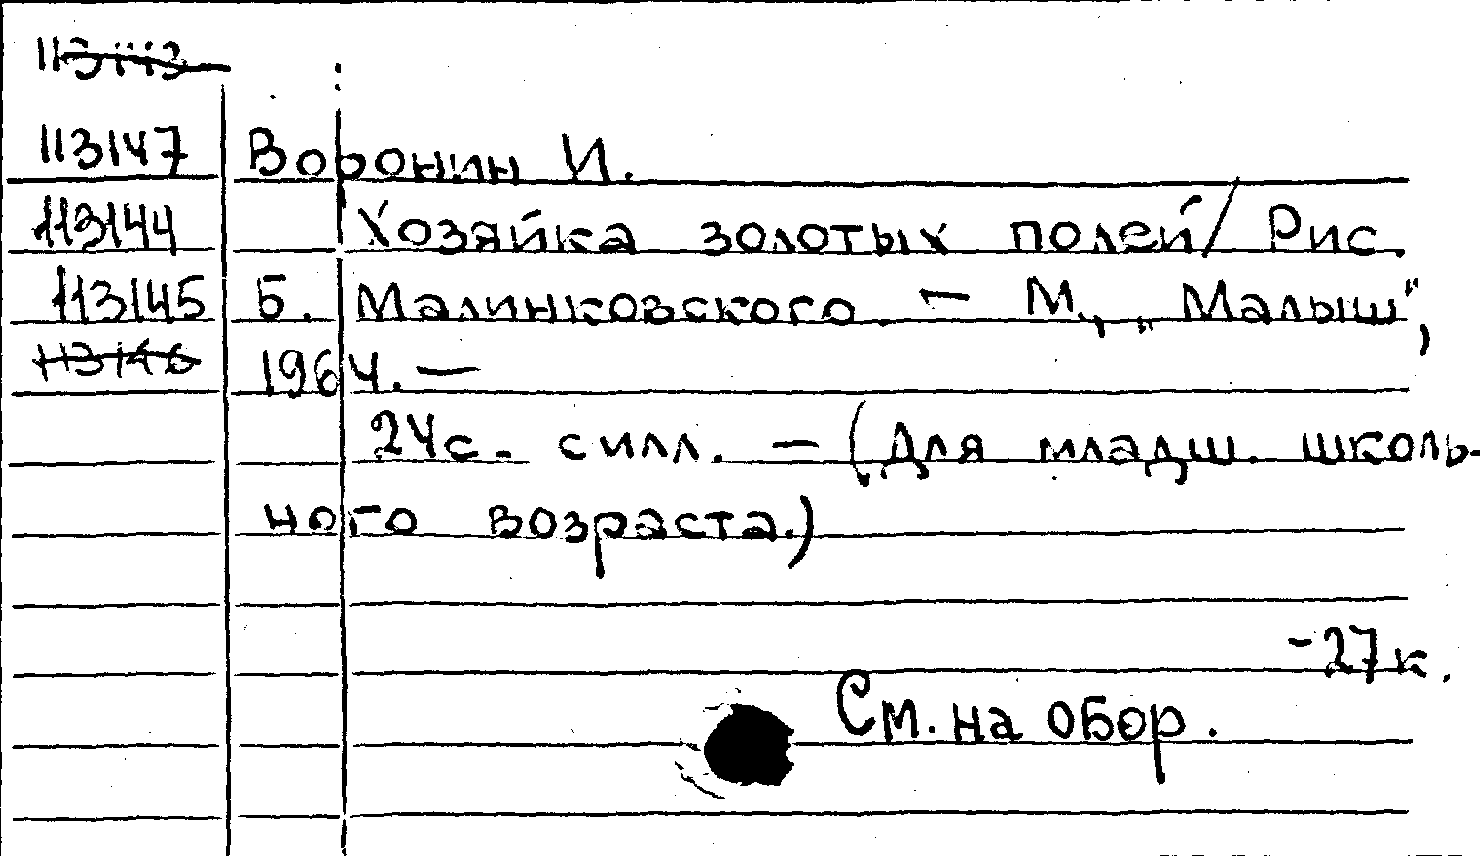 113147 Воронин И.
113144 Хозяйка золотых полей / Рис.
113145 Б. Малинковского. — М., „Малыш",
113146 1964. —
24с. с илл. — (Для младш. школь-
ного возраста.)
-27к.
См. на обор.